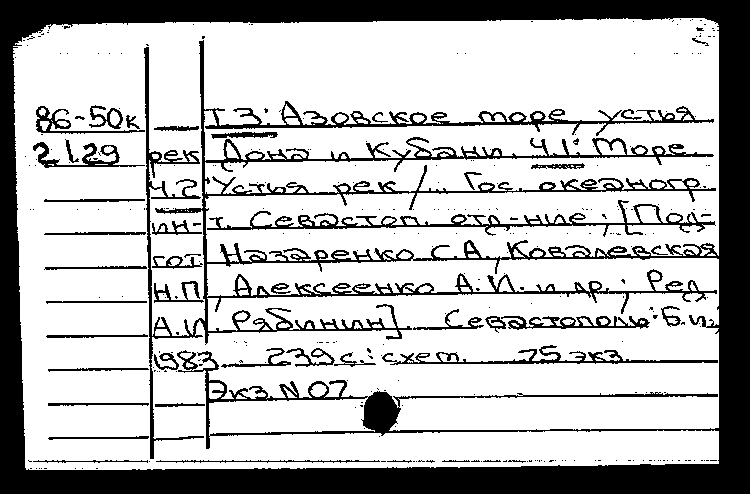 86-50к Т.3: Азовское море, устья
21.29 рек Дона и Кубани. Ч.1: Море.
Ч.2: Устья рек /... Гос. океаногр.
ин-т. Севастоп. отд-ние; [Под-
гот. Назаренко С.А., Ковалевская
Н.П., Алексеенко А.И. и др.; Ред.
А.И. Рябинин]. Севастополь: Б.и.,
1983. 239 с.: схем. 75 экз.
Экз. N 07